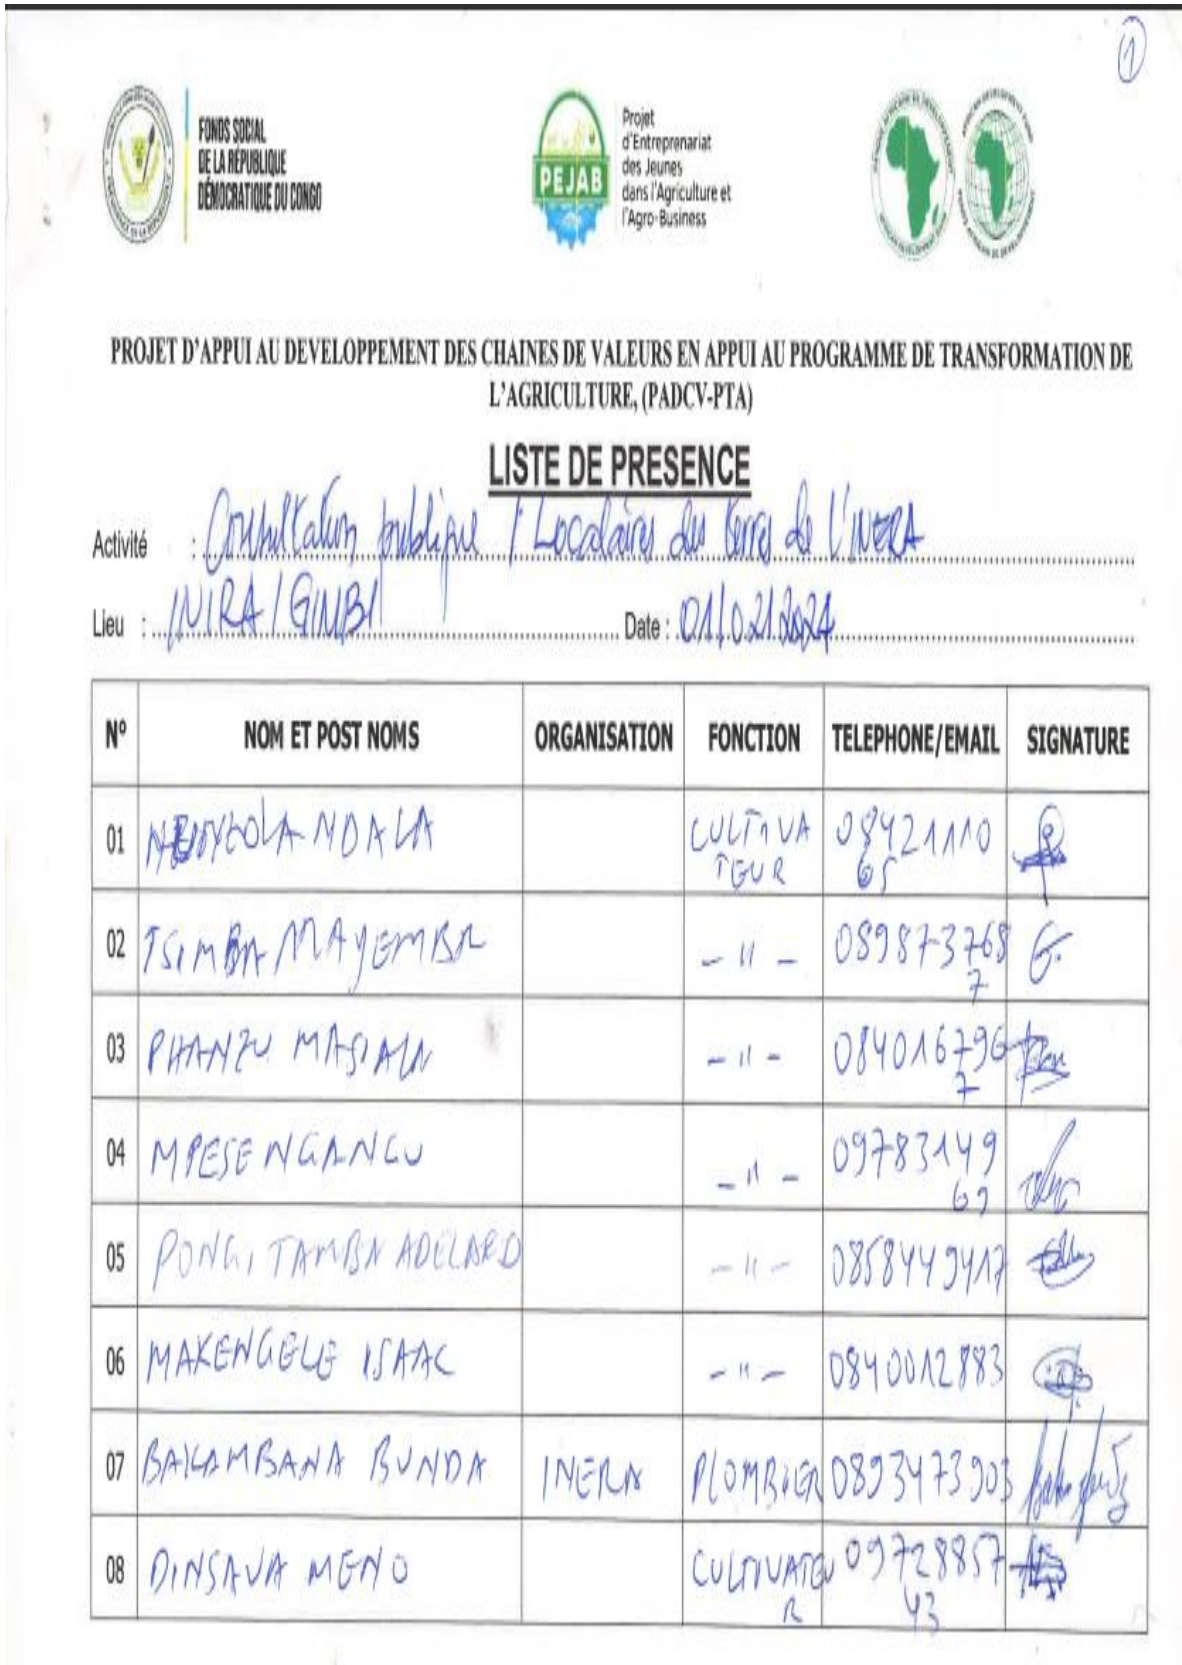 1
FONDS SOCIAL
DE LA RÉPUBLIQUE
DÉMOCRATIQUE DU CONGO
PEJAB
Projet
d'Entreprenariat
des Jeunes
dans l'Agriculture et
l'Agro-Business
PROJET D'APPUI AU DEVELOPPEMENT DES CHAINES DE VALEURS EN APPUI AU PROGRAMME DE TRANSFORMATION DE
L'AGRICULTURE, (PADCV-PTA)
LISTE DE PRESENCE
Activité : Consultation publique / Locataires des terres de L'INERA
Lieu : INIRA / GIMBI Date : 01/02/2024
N° NOM ET POST NOMS ORGANISATION FONCTION TELEPHONE/EMAIL SIGNATURE
01 NDALA CULTIVA 08421110
TEUR 65
02 TSIMBA MAYEMBA - " - 089873768
7
03 PHANZU - " - 084016796
7
04 MPESE NGANGU - " - 09783149
69
05 PONGI TAMBA ADELARD - " - 0858449417
06 MAKENGELE ISAAC - " - 0840012883
07 BAKAMBANA BUNDA INERA PLOMBIER 0893473903
08 DINSAVA MENO CULTIVATEU 09728857
R 43